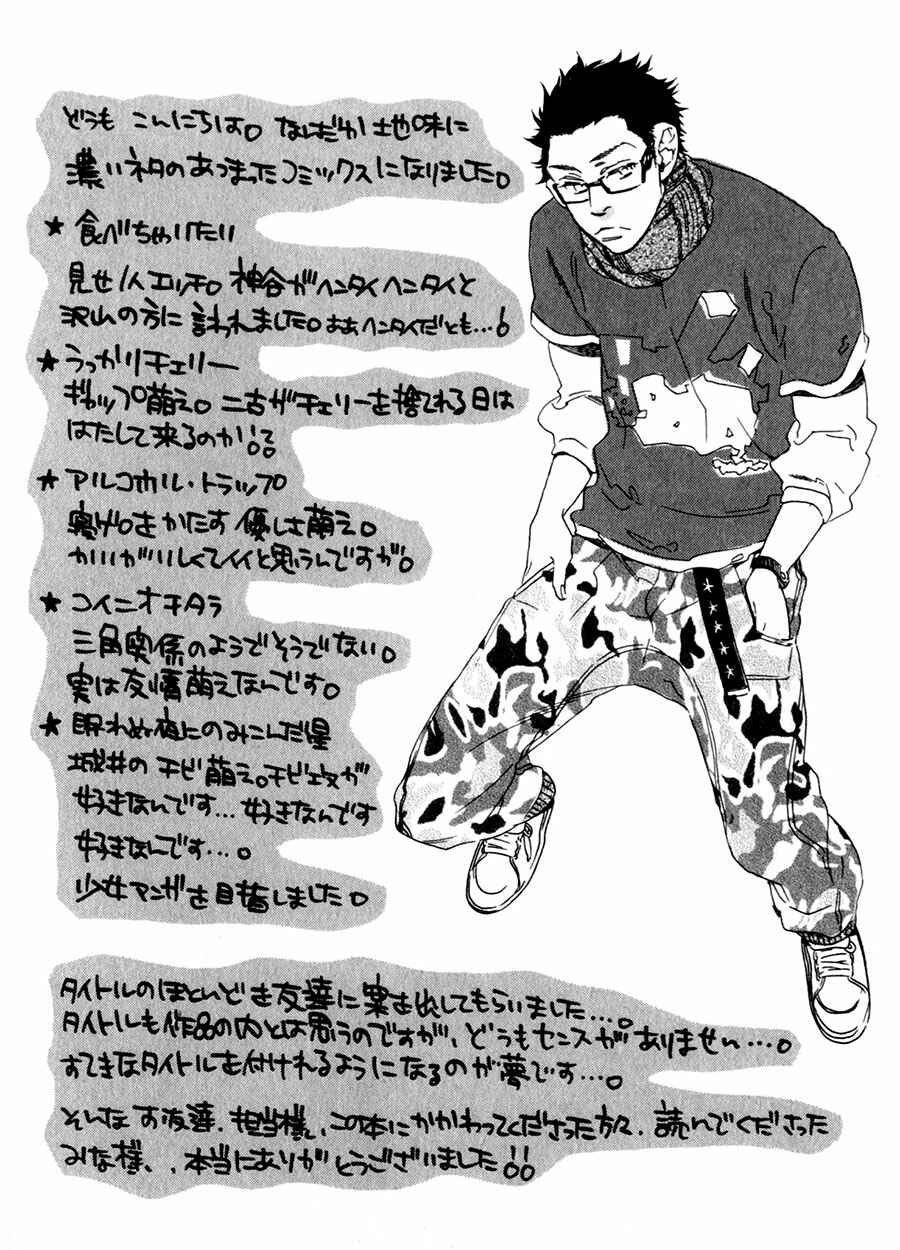 どうも こんにちは。なんだか地味に
濃いネタのあつまったコミックスになりました。
★食べちゃいたい
見せ1人エッチ。神谷がヘンタイヘンタイと
沢山の方に言われました。ああヘンタイだとも…!
★うっかりチェリー
ギャップ萌え。二古がチェリーを捨てれる日は
はたして来るのか!?
★アルコホル・トラップ
寝ゲロをかたす優しさ萌え。
かいがいしくてイイと思うんですが。
★コイニオチタラ
三角関係のようでそうでない。
実は友情萌えなんです。
★眠れぬ夜にのみこんだ星
城井のチビ萌え。チビ攻が
好きなんです…好きなんです
好きなんです…。
少女マンガを目指しました。
タイトルのほとんどを友達に案を出してもらいました…。
タイトルも作品の内とは思うのですが、どうもセンスがありません…。
すてきなタイトルを付けれるようになるのが夢です…。
そんなす友達、担当様、この本にかかわってくださった方々、読んでくださった
みな様、、本当にありがとうございました!!